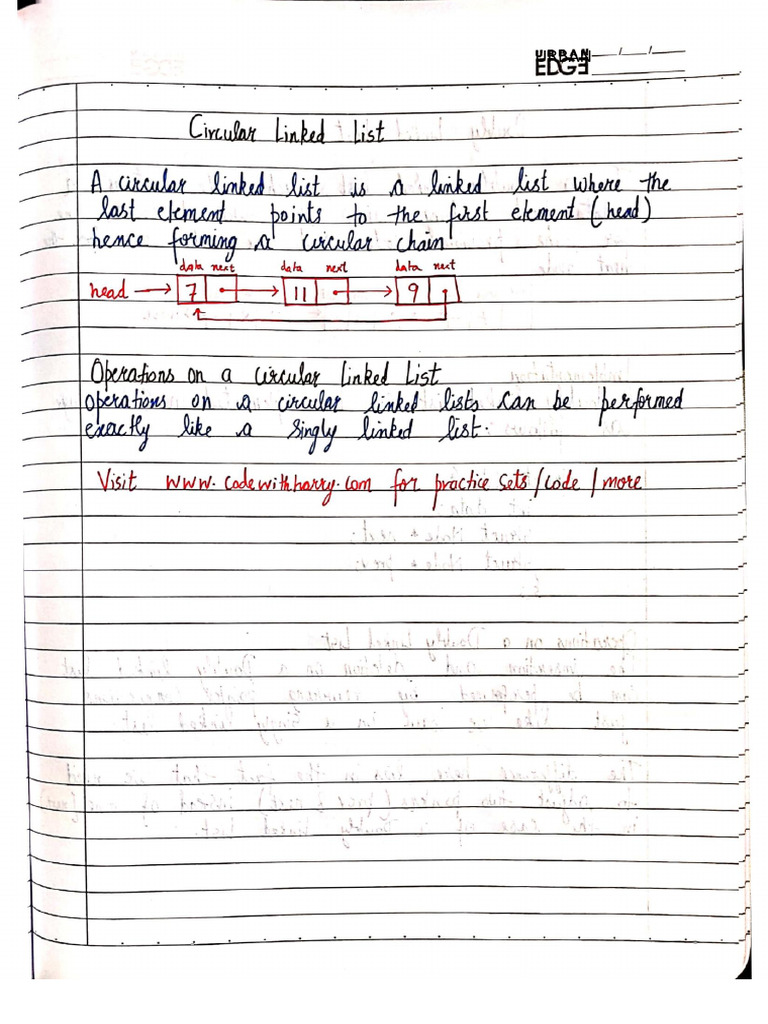 URBAN
EDGE
Circular Linked List
A circular linked list is a linked list where the
last element points to the first element (head)
hence forming a circular chain
data next data next data next
head 7 11 9
Operations on a circular Linked List
operations on a circular linked lists can be performed
exactly like a singly linked list.
Visit www.codewithharry.com for practice sets/code/more